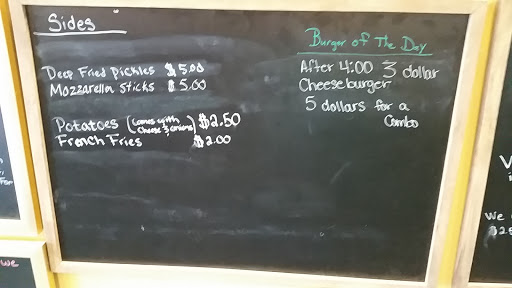 Sides
Deep Fried Pickles $5.00
Mozzarella Sticks $5.00
Potatoes (comes with cheese & onions) $2.50
French Fries $2.00
Burger of The Day
After 4:00 3 dollar
Cheeseburger
5 dollars for a
Combo
For
we
V
We
$25